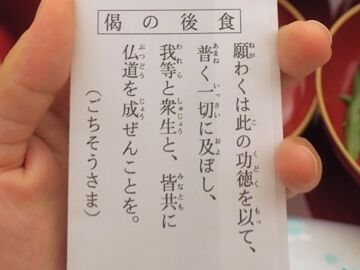 食後の偈
願わくは此の功徳を以て、
普く一切に及ぼし、
我等と衆生と、皆共に
仏道を成ぜんことを。
（ごちそうさま）